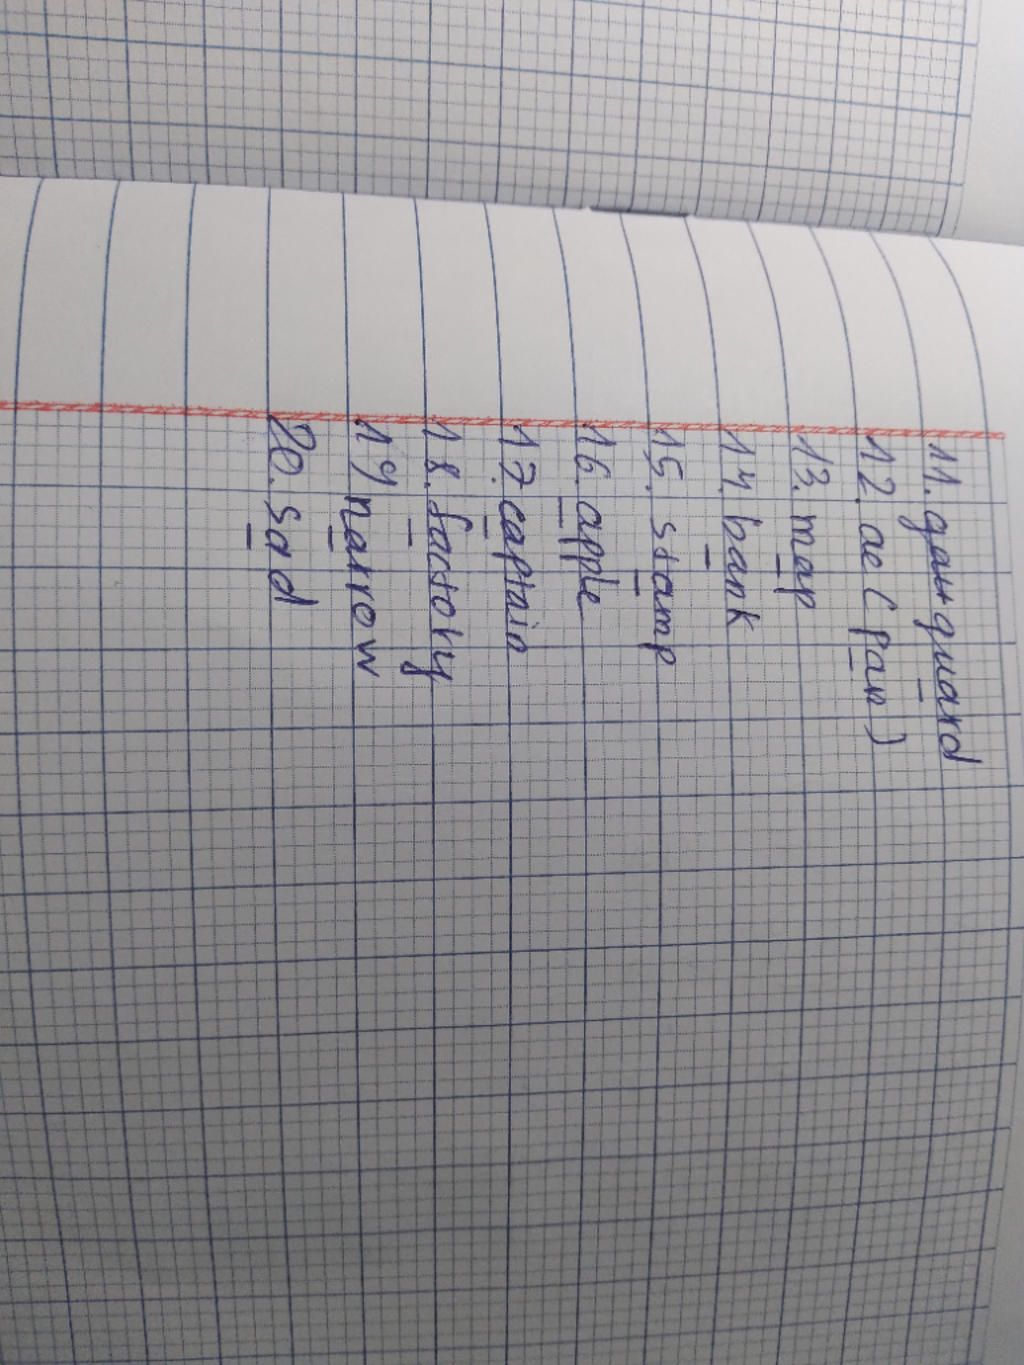 11. guard
12. ae (pan)
13. map
14. bank
15. stamp
16. apple
17. captain
18. factory
19 narrow
20. sad